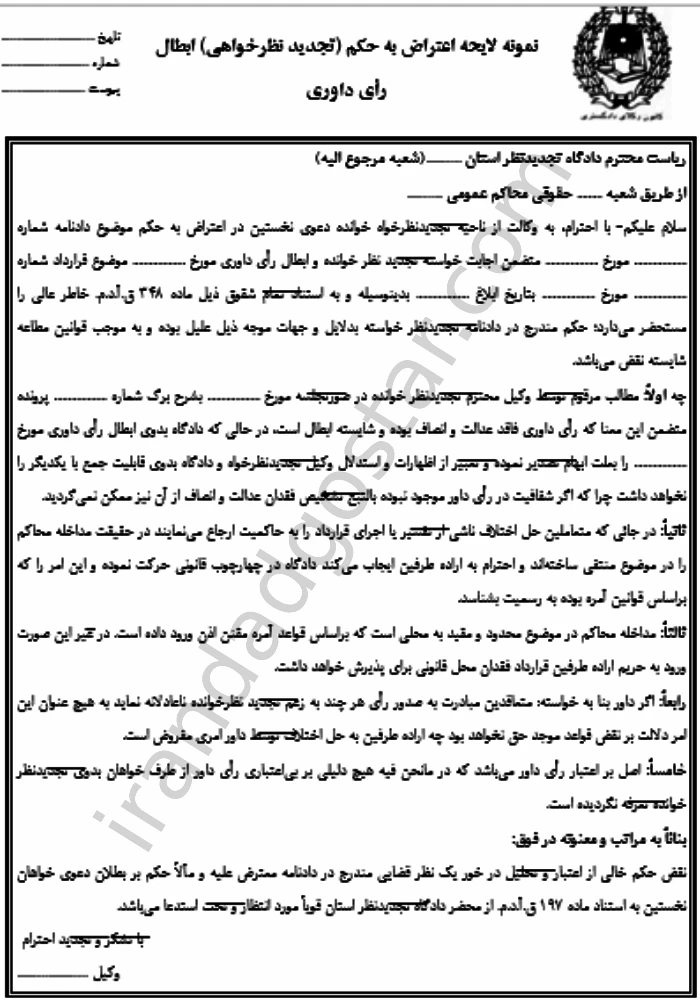 نمونه لایحه اعتراض به حکم (تجدید نظرخواهی) ابطال
رأی داوری
تاریخ ....................
شماره ....................
پیوست ....................
کانون وکلای دادگستری
ریاست محترم دادگاه تجدیدنظر استان ........(شعبه مرجوع الیه)
از طریق شعبه ...... حقوقی محاکم عمومی ........
سلام علیکم- با احترام، به وکالت از ناحیه تجدیدنظرخواه خوانده دعوی نخستین در اعتراض به حکم موضوع دادنامه شماره
............ مورخ ............ متضمن اجابت خواسته تجدید نظر خوانده و ابطال رأی داوری مورخ ............ موضوع قرارداد شماره
............ مورخ ............ بتاریخ ابلاغ ............ بدینوسیله و به استناد تمام شقوق ذیل ماده ۳۴۸ ق.آ.د.م. خاطر عالی را
مستحضر می‌دارد؛ حکم مندرج در دادنامه تجدیدنظر خواسته بدلایل و جهات موجه ذیل علیل بوده و به موجب قوانین مطاعه
شایسته نقض می‌باشد.
چه اولاً: مطالب مرقوم توسط وکیل محترم تجدیدنظر خوانده در صورتجلسه مورخ ............ بشرح برگ شماره ............ پرونده
متضمن این معنا که رأی داوری فاقد عدالت و انصاف بوده و شایسته ابطال است، در حالی که دادگاه بدوی ابطال رأی داوری مورخ
............ را بعلت ابهام تصدیر نموده و تعبیر از اظهارات و استدلال وکیل تجدیدنظرخواه و دادگاه بدوی قابلیت جمع با یکدیگر را
نخواهد داشت چرا که اگر شفافیت در رأی داور موجود نبوده بالتبع تشخیص فقدان عدالت و انصاف از آن نیز ممکن نمی‌گردید.
ثانیاً: در جائی که متعاملین حل اختلاف ناشی از تفسیر یا اجرای قرارداد را به حاکمیت ارجاع می‌نمایند در حقیقت مداخله محاکم
را در موضوع منتقی ساخته‌اند و احترام به اراده طرفین ایجاب می‌کند دادگاه در چهارچوب قانونی حرکت نموده و این امر را که
براساس قوانین آمره بوده به رسمیت بشناسد.
ثالثاً: مداخله محاکم در موضوع محدود و مقید به محلی است که براساس قواعد آمره مقنن اذن ورود داده است. در غیر این صورت
ورود به حریم اراده طرفین قرارداد فقدان محل قانونی برای پذیرش خواهد داشت.
رابعاً: اگر داور بنا به خواسته: متعاقدین مبادرت به صدور رأی هر چند به زعم تجدید نظرخوانده ناعادلانه نماید به هیچ عنوان این
امر دلالت بر نقض قواعد موجد حق نخواهد بود چه اراده طرفین به حل اختلاف توسط داور امری مفروض است.
خامساً: اصل بر اعتبار رأی داور می‌باشد که در مانحن فیه هیچ دلیلی بر بی‌اعتباری رأی داور از طرف خواهان بدوی تجدیدنظر
خوانده تعرفه نگردیده است.
بنائاً به مراتب و معنونه در فوق:
نقض حکم خالی از اعتبار و تحلیل در خور یک نظر قضایی مندرج در دادنامه معترض علیه و مآلاً حکم بر بطلان دعوی خواهان
نخستین به استناد ماده ۱۹۷ ق.آ.د.م. از محضر دادگاه تجدیدنظر استان قویاً مورد انتظار و تحت استدعا می‌باشد.
با تشکر و تجدید احترام
وکیل ....................
irandadgostar.com